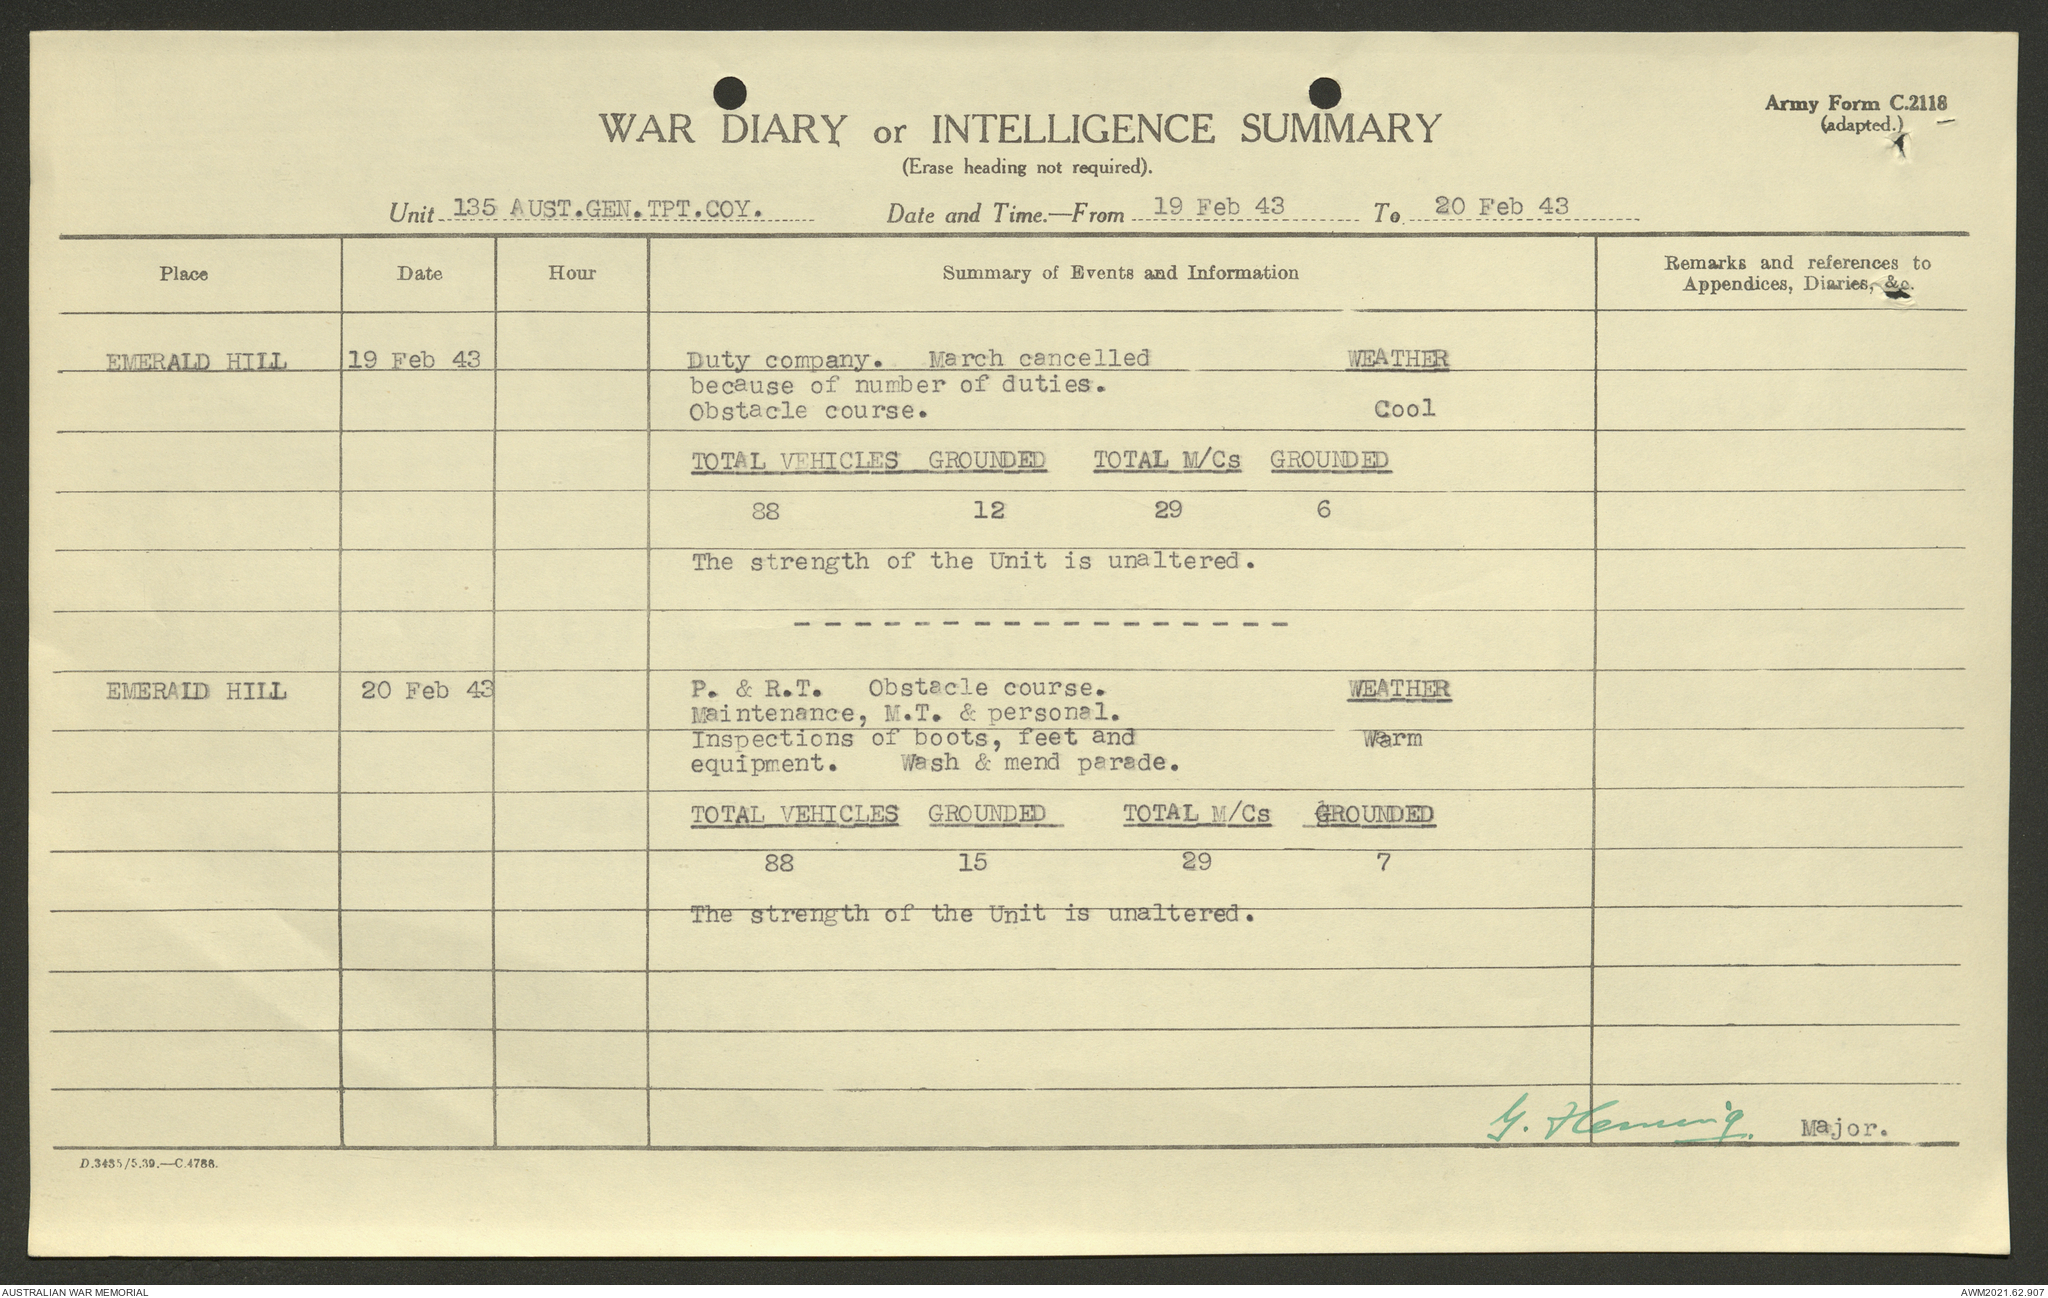 Army Form C.2118
(adapted.)
WAR DIARY or INTELLIGENCE SUMMARY
(Erase heading not required).
Unit 135 AUST.GEN.TPT.COY. Date and Time.—From 19 Feb 43 To 20 Feb 43
Place Date Hour Summary of Events and Information Remarks and references to
Appendices, Diaries, &c.
EMERALD HILL 19 Feb 43 Duty company. March cancelled WEATHER
because of number of duties.
Obstacle course. Cool
TOTAL VEHICLES GROUNDED TOTAL M/Cs GROUNDED
88 12 29 6
The strength of the Unit is unaltered.
- - - - - - - - - - - - - - - - -
EMERALD HILL 20 Feb 43 P. & R.T. Obstacle course. WEATHER
Maintenance, M.T. & personal.
Inspections of boots, feet and Warm
equipment. Wash & mend parade.
TOTAL VEHICLES GROUNDED TOTAL M/Cs GROUNDED
88 15 29 7
The strength of the Unit is unaltered.
G. Fleming. Major.
D.3435/5.39.—C.4788.
AUSTRALIAN WAR MEMORIAL AWM2021.62.907